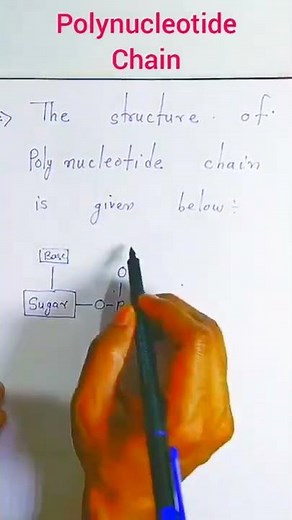 Polynucleotide
Chain
=> The structure of
Poly nucleotide chain
is given below :-
Base
O
Sugar — O — P